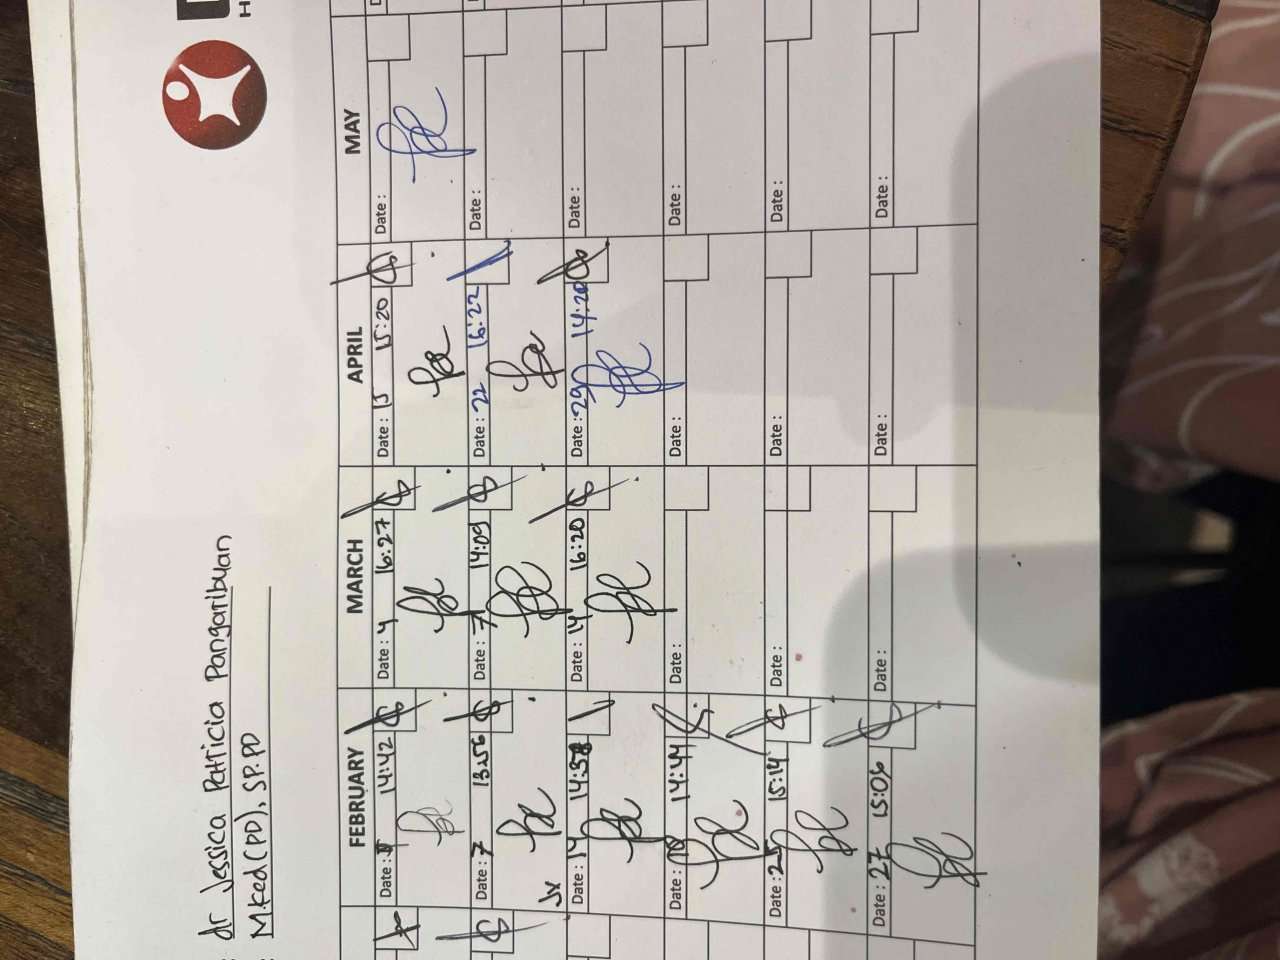 dr Jessica Patricia Pangaribuan
M.Ked(PD), SP.PD
FEBRUARY MARCH APRIL MAY
Date: 14:42 Date: 4 16:27 Date: 15 15:20 Date:
Date: 7 13.56 Date: 7 14:09 Date: 22 16:22 Date:
Date: 14 14:58 Date: 14 16:20 Date: 29 14:20 Date:
Date: 18 14:44 Date: Date: Date:
Date: 25 15:14 Date: Date: Date:
Date: 27 15:05 Date: Date: Date: